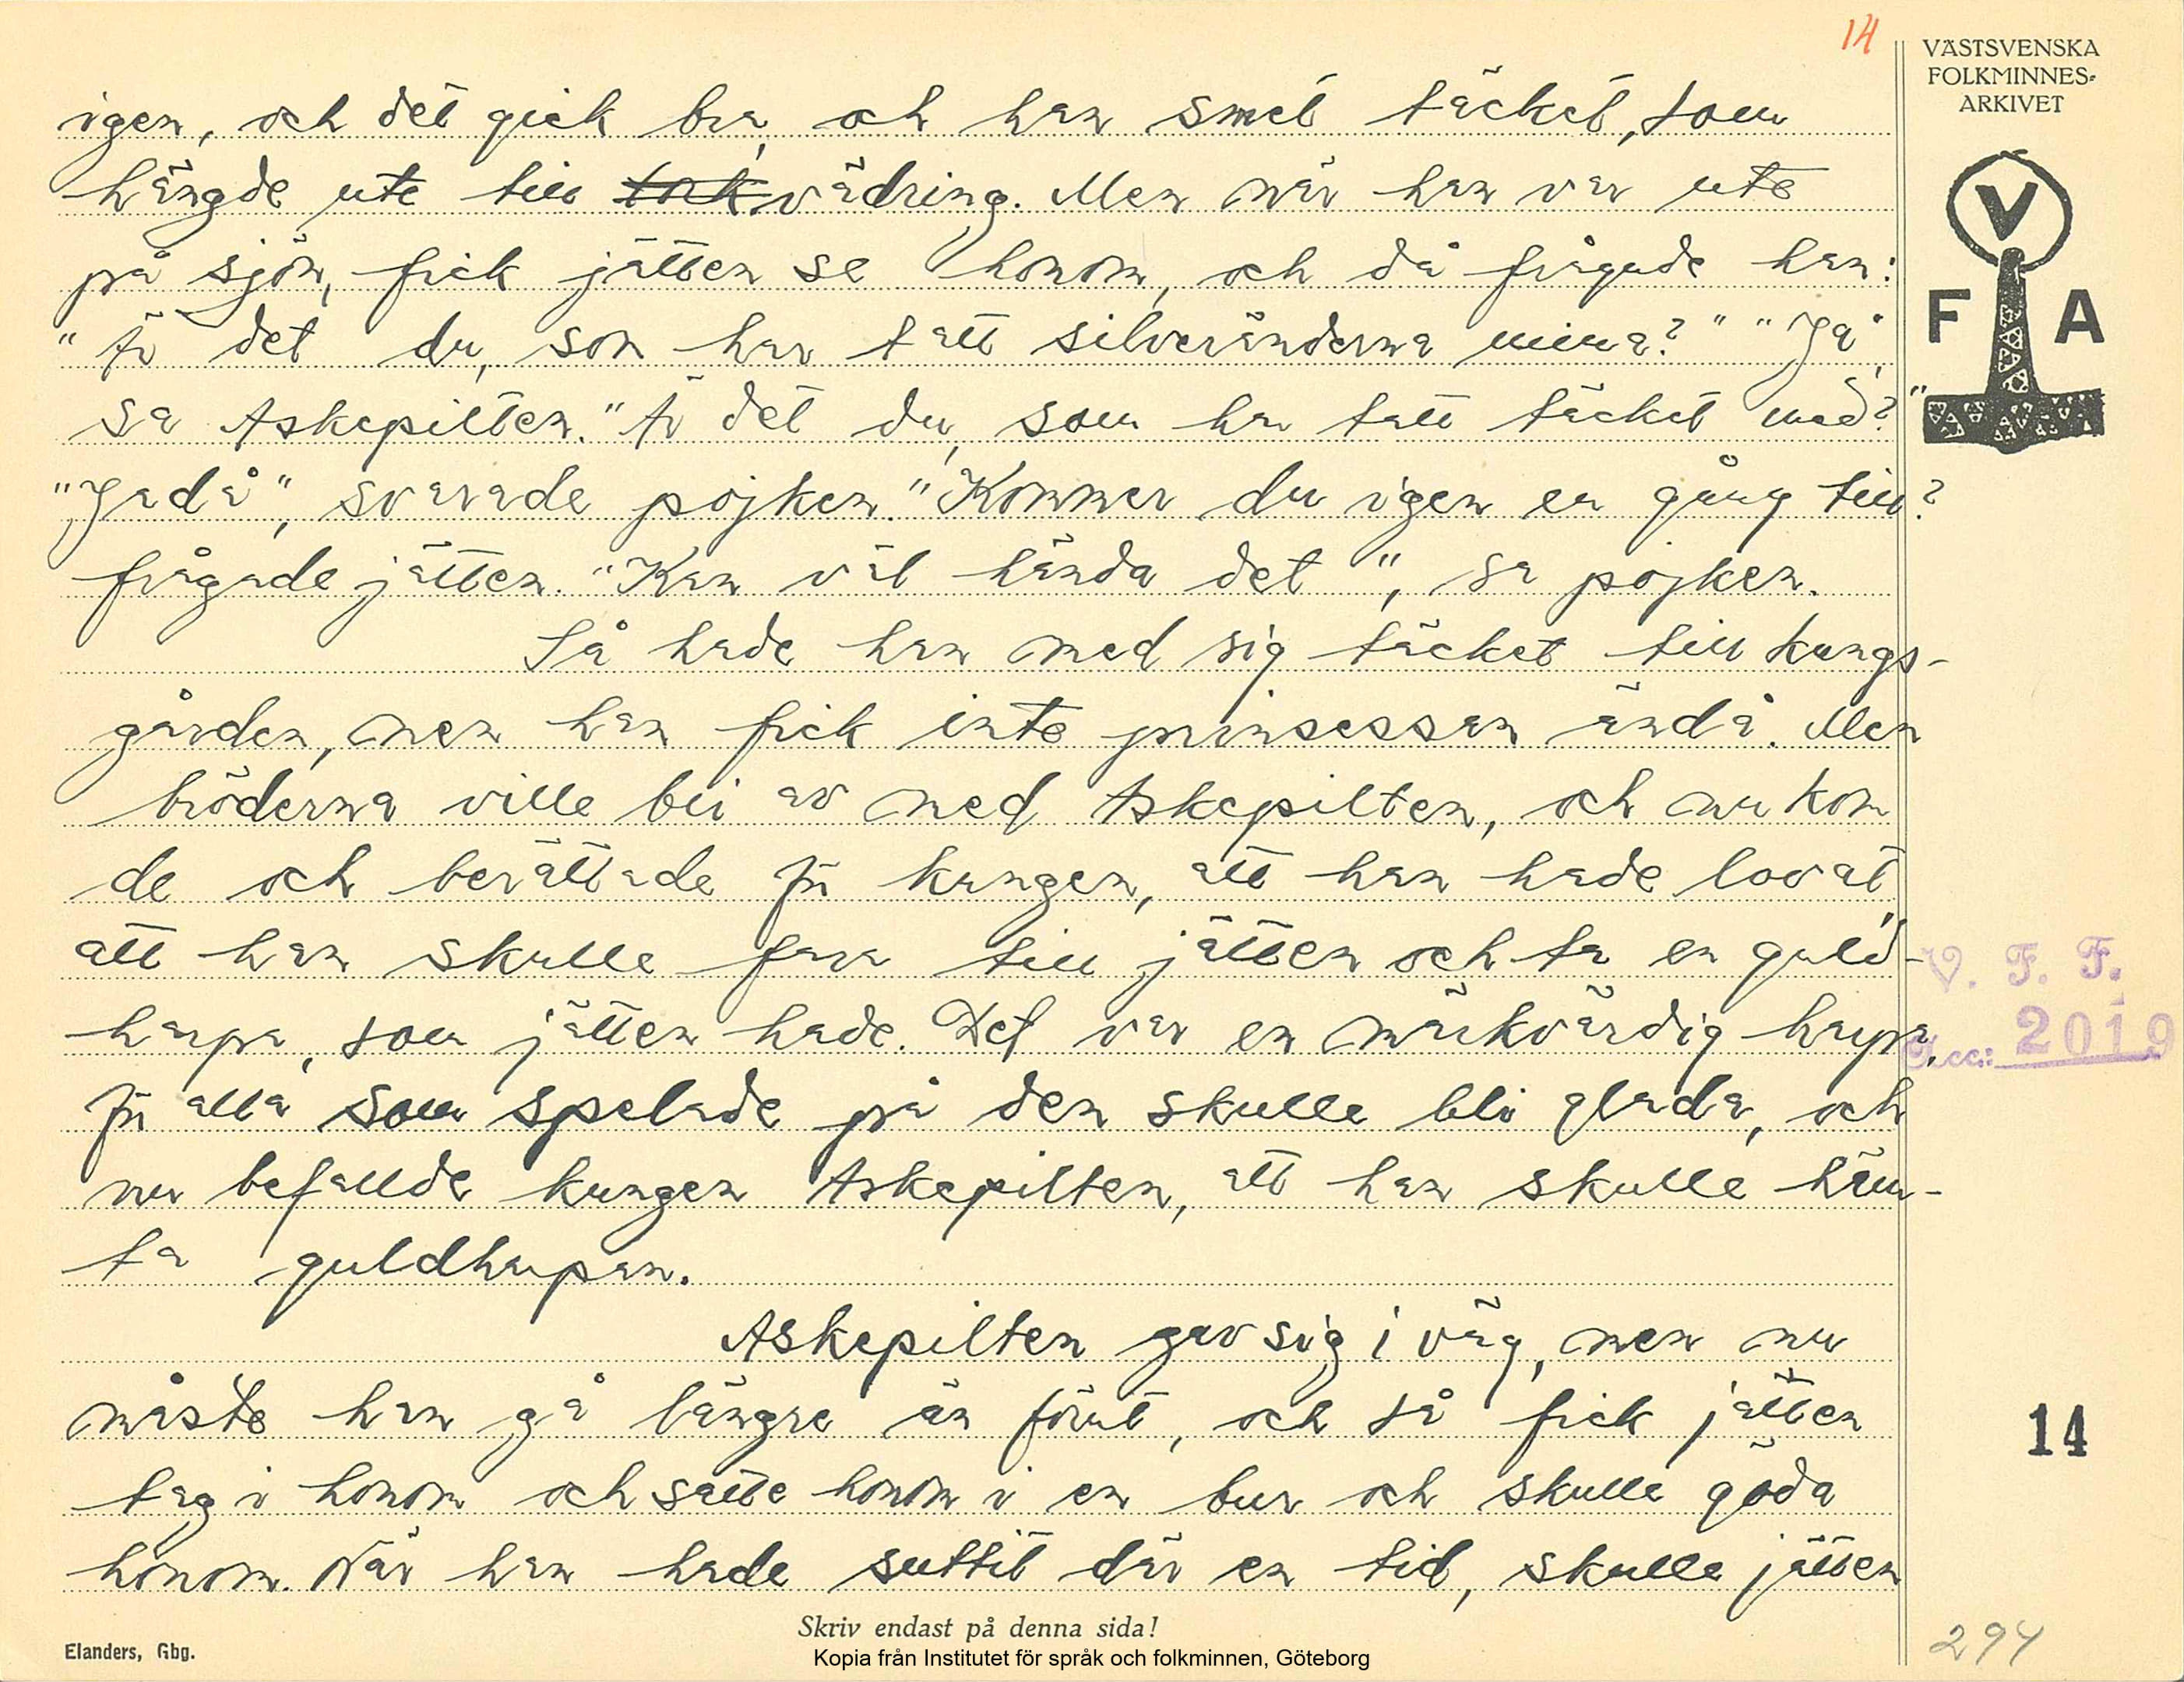 14
VÄSTSVENSKA
FOLKMINNES-
ARKIVET
V
F A
igen, och det gick bra, och han smet täcket, som
hängde ute till tork vädring. Men när han var ute
på sjön, fick jätten se honom, och då frågade han:
"Är det du, som har tatt silveränderna mina?" "Ja",
sa Askepilten. "Är det du, som har tatt täcket med?"
"Jadå", svarade pojken. "Kommer du igen en gång till?
frågade jätten. "Kan väl hända det", sa pojken.
Så hade han med sig täcket till kungs-
gården, men han fick inte prinsessan ändå. Men
bröderna ville bli av med Askepilten, och nu kom
de och berättade för kungen, att han hade lovat
att han skulle fara till jätten och ta en guld-
harpa, som jätten hade. Det var en märkvärdig harpa,
för alla som spelade på den skulle bli glada, och
nu befallde kungen Askepilten, att han skulle häm-
ta guldharpan.
Askepilten gav sig i väg, men nu
måste han gå längre än förut, och så fick jätten
tag i honom och satte honom i en bur och skulle göda
honom. När han hade suttit där en tid, skulle jätten
V. F. F.
Acc: 2019
14
294
Skriv endast på denna sida!
Elanders, Gbg.
Kopia från Institutet för språk och folkminnen, Göteborg